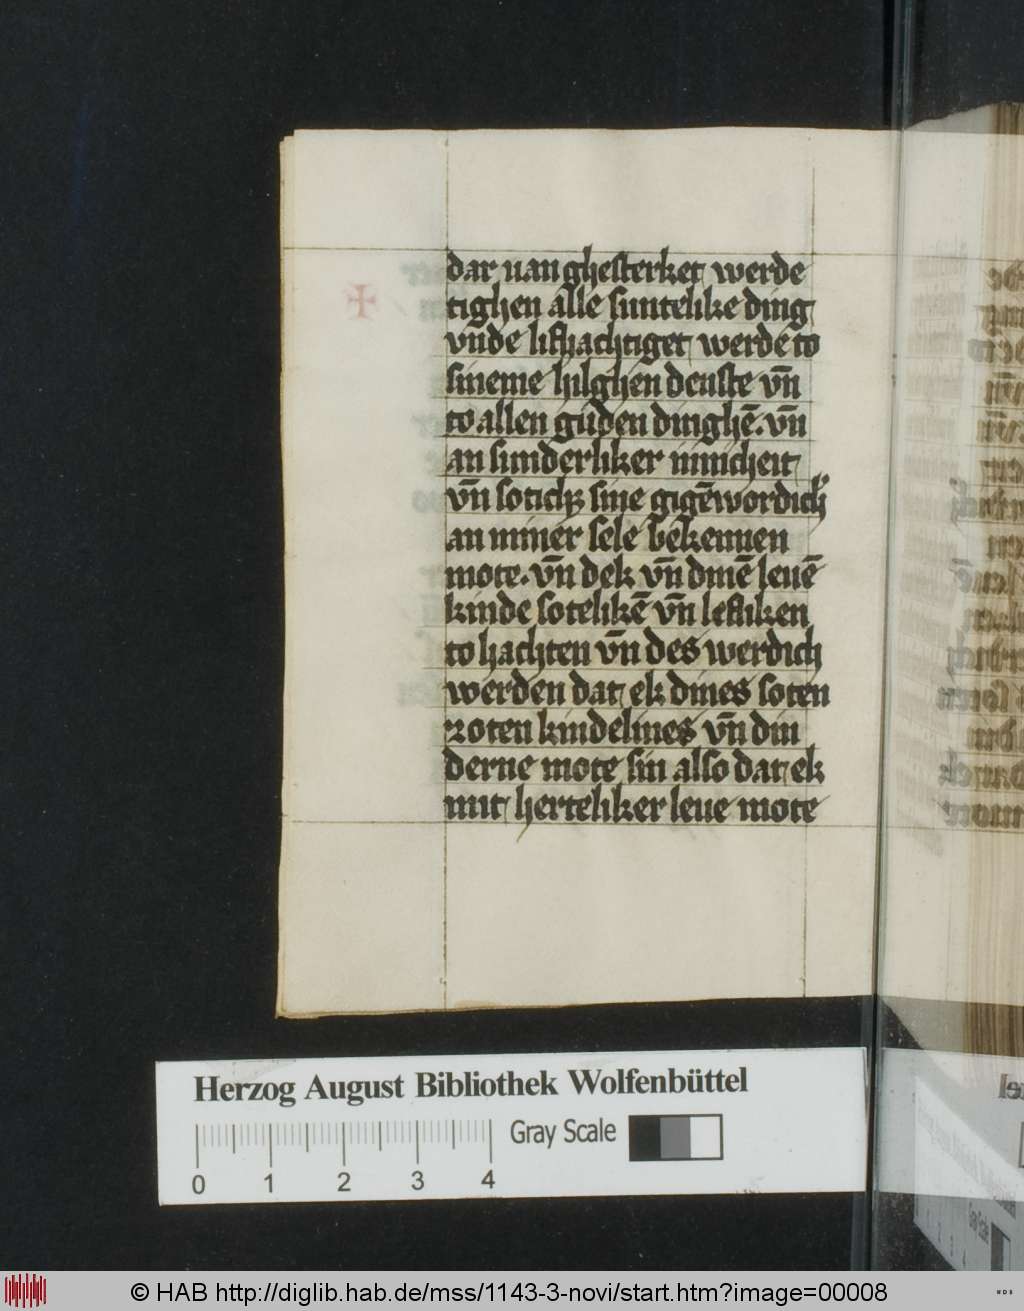 dar uan ghesterket werde
tighen alle suntelike ding
vnde lifhachtiget werde to
sineme hilghen denste vn̄
to allen guden dinghē. vn̄
an sunderliker innicheit
vn̄ sotich sine gigēwordich
an miner sele bekennen
mote. vn̄ dek vn̄ dinē leuē
kinde sotelikē vn̄ lefliken
to hachten vn̄ des werdich
werden dat ek dines soten
roten kindelines vn̄ din
derne mote sin also dat ek
mit herteliker leue mote
Herzog August Bibliothek Wolfenbüttel
Gray Scale
0 1 2 3 4
© HAB http://diglib.hab.de/mss/1143-3-novi/start.htm?image=00008